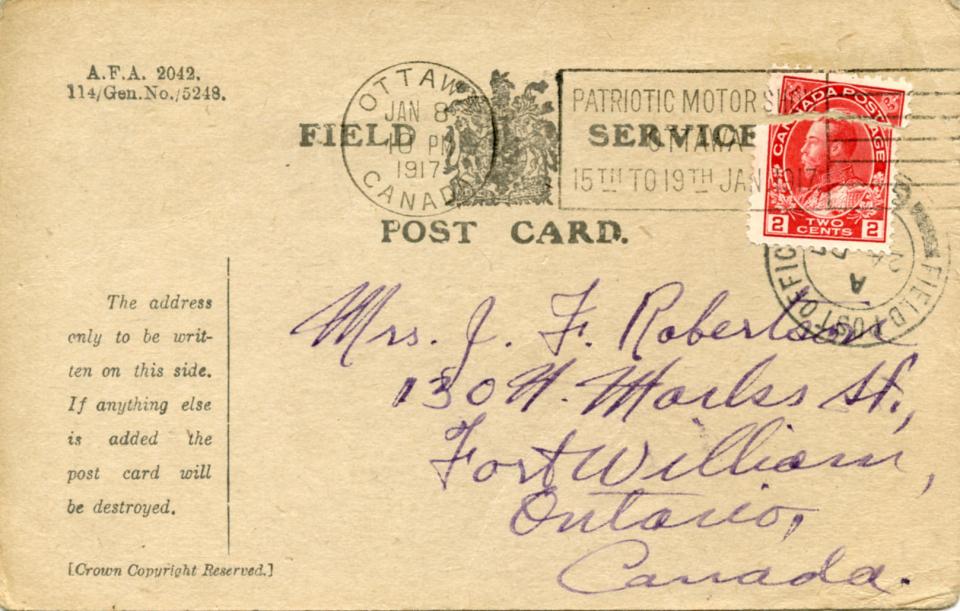 A.F.A. 2042.
114/Gen.No./5248.
OTTAWA
JAN 8
10 PM
1917
CANADA
PATRIOTIC MOTOR
OTTAWA
15TH TO 19TH JAN 1917
FIELD SERVICE
POST CARD.
CANADA POSTAGE
2 TWO CENTS 2
FIELD POST OFFICE
A
The address
only to be writ-
ten on this side.
If anything else
is added the
post card will
be destroyed.
[Crown Copyright Reserved.]
Mrs. J. F. Robertson
130 N. Marks St.,
Fort William,
Ontario,
Canada.